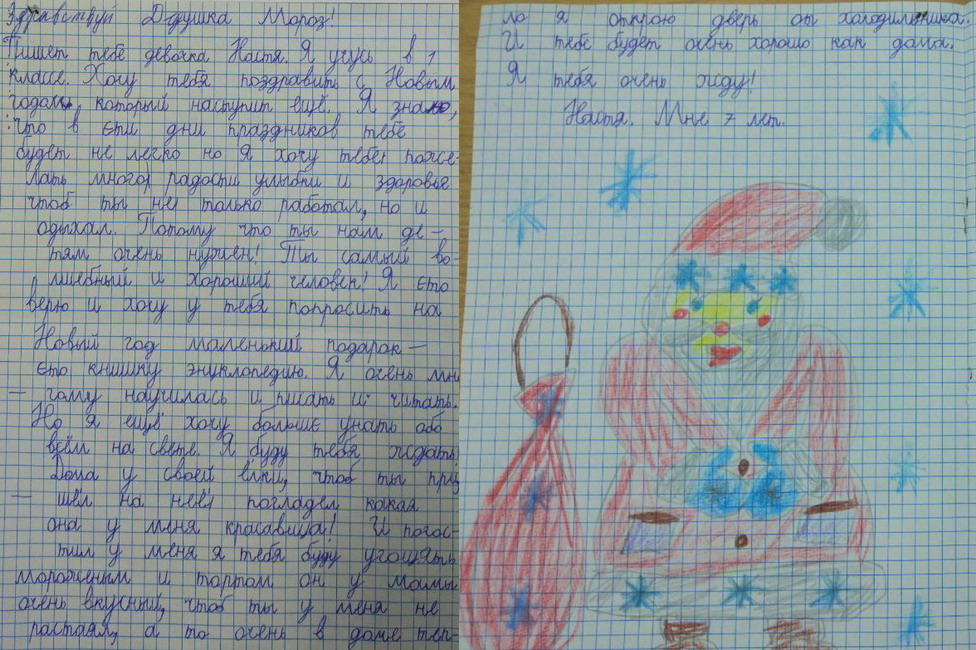 Здравствуй Дедушка Мороз!
Пишет тебе девочка Настя. Я учусь в 1
классе. Хочу тебя поздравить с Новым
годом, который наступит ещё. Я знаю,
что в эти дни праздников тебе
будет не легко но Я хочу тебе поже-
лать много радости улыбки и здоровье
чтоб ты не только работал, но и
одыхал. Потому что ты нам де-
тям очень нужен! Ты самый во-
лшебный и хороший человек! Я ето
верю и хочу у тебя попросить на
Новый год маленький подарок-
ето книшку энуклопедию. Я очень мно
- гому научилась и писать и читать.
Но я ещё хочу больше узнать обо
всём на свете. Я буду тебя ждать
Дома у своей ёлки, чтоб ты при
- шёл на неё погладел какая
она у меня красавица! И погос-
тил у меня я тебя буду угощять
мороженым и тортом он у мамы
очень вкусный, чтоб ты у меня не
растаял, а то очень в доме теп-
ло я открою дверь от холодильника.
И тебе будет очень хорошо как дома.
Я тебя очень жду!
Настя. Мне 7 лет.